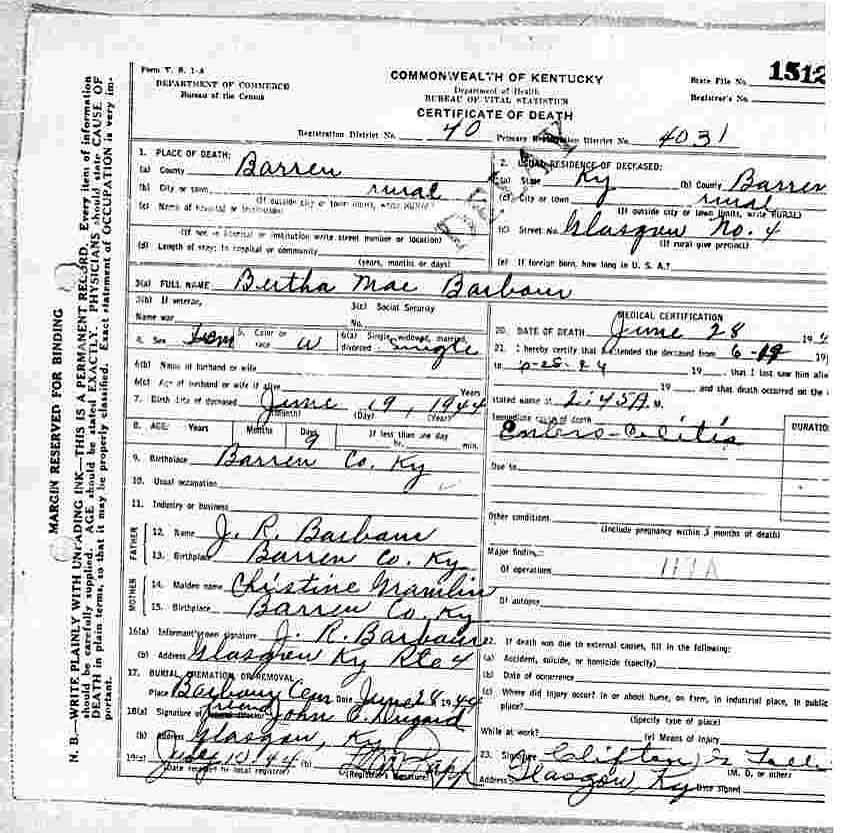 MARGIN RESERVED FOR BINDING
N. B.—WRITE PLAINLY WITH UNFADING INK—THIS IS A PERMANENT RECORD. Every item of information
should be carefully supplied. AGE should be stated EXACTLY. PHYSICIANS should state CAUSE OF
DEATH in plain terms, so that it may be properly classified. Exact statement of OCCUPATION is very im-
portant.
Form V. S. 1-A
DEPARTMENT OF COMMERCE
Bureau of the Census
COMMONWEALTH OF KENTUCKY
Department of Health
BUREAU OF VITAL STATISTICS
CERTIFICATE OF DEATH
State File No. 1512
Registrar's No.
Registration District No. 40 Primary Registration District No. 4031
1. PLACE OF DEATH:
(a) County Barren
(b) City or town rural
(If outside city or town limits, write RURAL)
(c) Name of hospital or institution:
(If not in hospital or institution write street number or location)
(d) Length of stay: In hospital or community
(years, months or days)
2. USUAL RESIDENCE OF DECEASED:
(a) State Ky (b) County Barren
(c) City or town rural
(If outside city or town limits, write RURAL)
Street No. Glasgow No. 4
(If rural give precinct)
(e) If foreign born, how long in U. S. A.?
3(a) FULL NAME Bertha Mae Barbour
3(b) If veteran,
Name war
3(c) Social Security
No.
4. Sex Fem 5. Color or race W 6(a) Single, widowed, married, divorced Single
6(b) Name of husband or wife
6(c) Age of husband or wife if alive Years
7. Birth date of deceased June 19, 1944
(Month) (Day) (Year)
8. AGE: Years Months Days 9 If less than one day
hr. min.
9. Birthplace Barren Co. Ky
10. Usual occupation
11. Industry or business
FATHER
12. Name J. R. Barbour
13. Birthplace Barren Co. Ky
MOTHER
14. Maiden name Christine Gramlin
15. Birthplace Barren Co. Ky
16(a) Informant's own signature J. R. Barbour
(b) Address Glasgow Ky Rte 4
17. BURIAL, CREMATION, OR REMOVAL
Place Barbour Cem Date June 28 1944
18(a) Signature of friend John C. Dugard
(b) Address Glasgow, Ky
19(a) July 10 44 (b)
(Date received by local registrar) (Registrar's Signature)
MEDICAL CERTIFICATION
20. DATE OF DEATH June 28 194
21. I hereby certify that I attended the deceased from 6-19 19
to 6-28-44 19 that I last saw him alive
19 and that death occurred on the
stated above at 2:45 A. M.
Immediate cause of death
Entero-Colitis
DURATIO
Due to
Other conditions
(Include pregnancy within 3 months of death)
Major findings:
Of operations
119A
Of autopsy
22. If death was due to external causes, fill in the following:
(a) Accident, suicide, or homicide (specify)
(b) Date of occurrence
(c) Where did injury occur? in or about home, on farm, in industrial place, in public
place?
(Specify type of place)
While at work? (e) Means of injury
23. Signature Clifton
(M. D. or other)
Address Glasgow, Ky Date signed